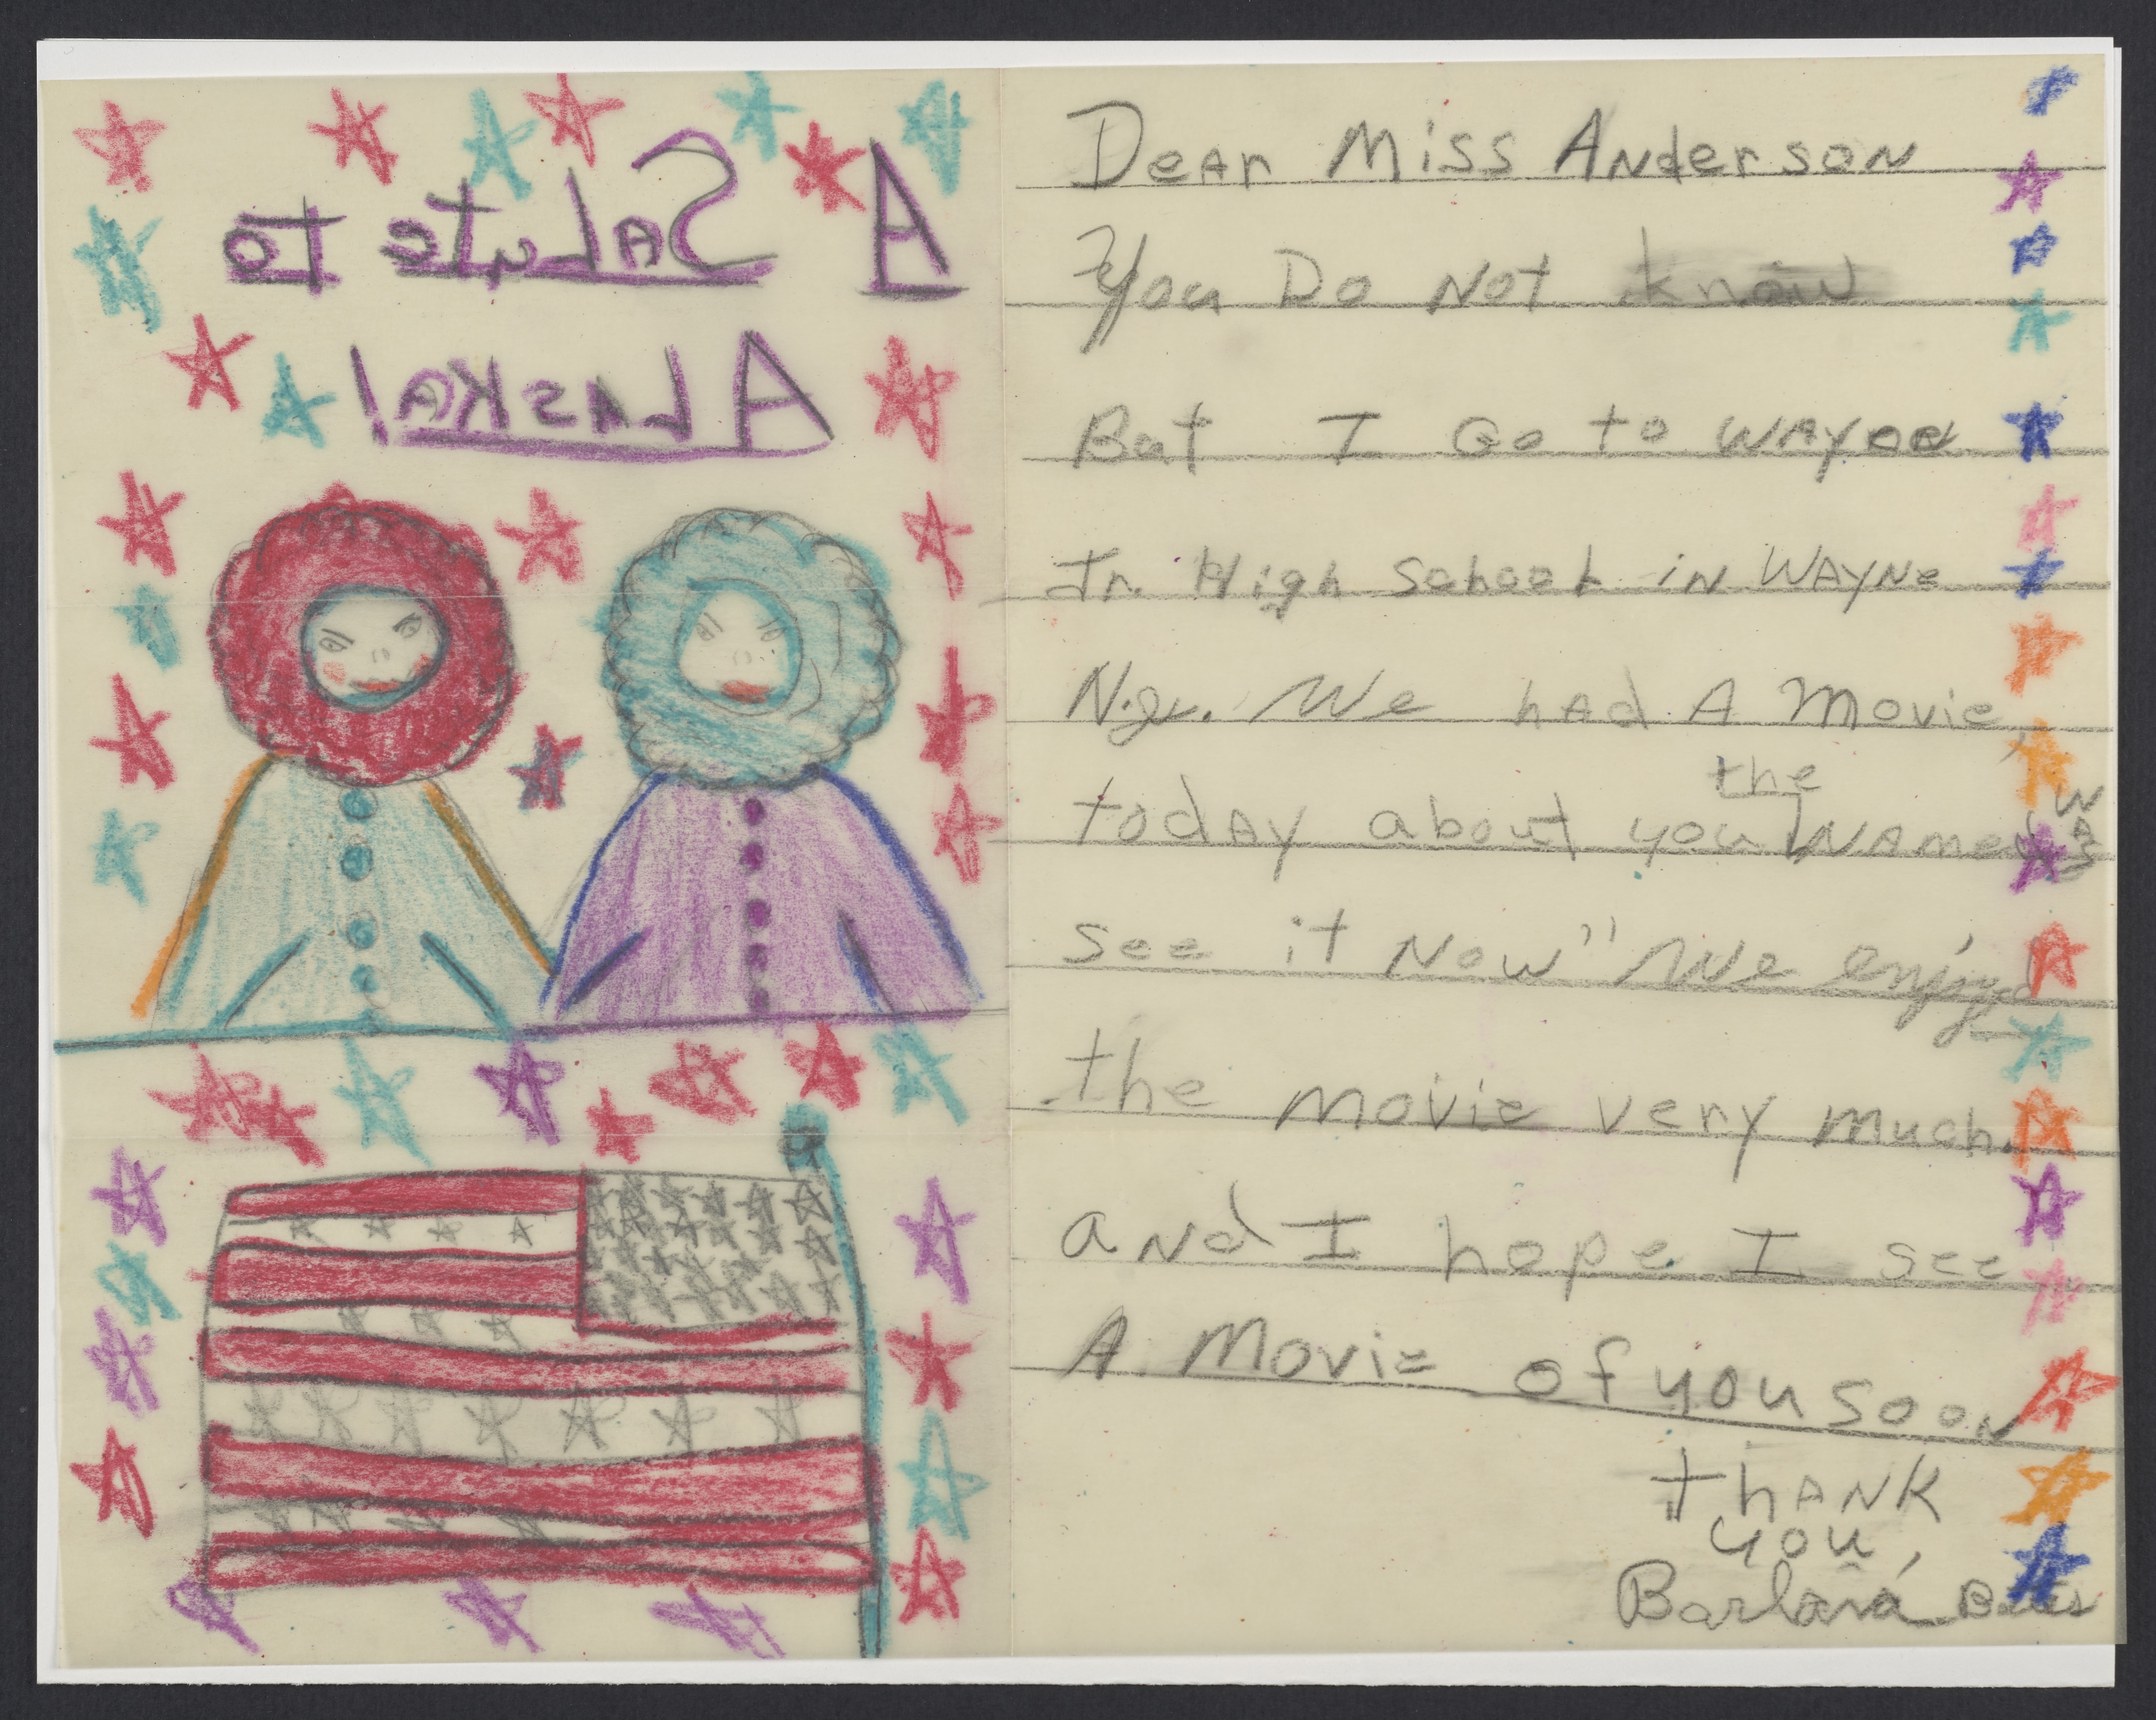 A Salute to
Alaska!
Dear Miss Anderson
You Do Not know
But I Go to WAYNE
Jr. High School iN WAYNe
N.J. We hAd A Movie
today about you the NAme was
see it Now" We enjoyed
the movie very much.
aNd I hope I see
A Movie of you sooN
thANK
you,
Barbara